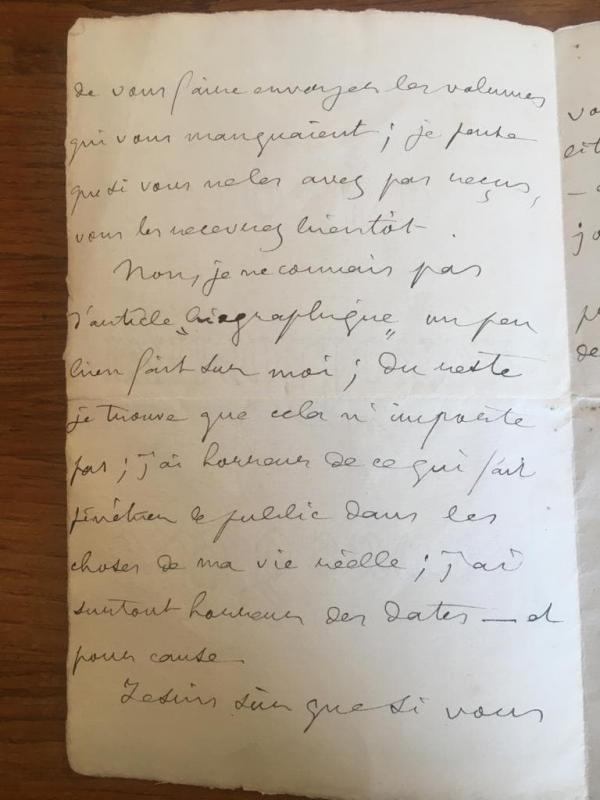 de vous faire envoyer les volumes
qui vous manquaient ; je pense
que si vous ne les avez pas reçus,
vous les recevrez bientôt .
Non, je ne connais pas
d'article "biographique" un peu
bien fait sur moi ; du reste
je trouve que cela n'importe
pas ; j'ai horreur de ce qui fait
pénétrer le public dans les
choses de ma vie réelle ; j'ai
surtout horreur des dates — et
pour cause
Je suis sûr que si vous
vo